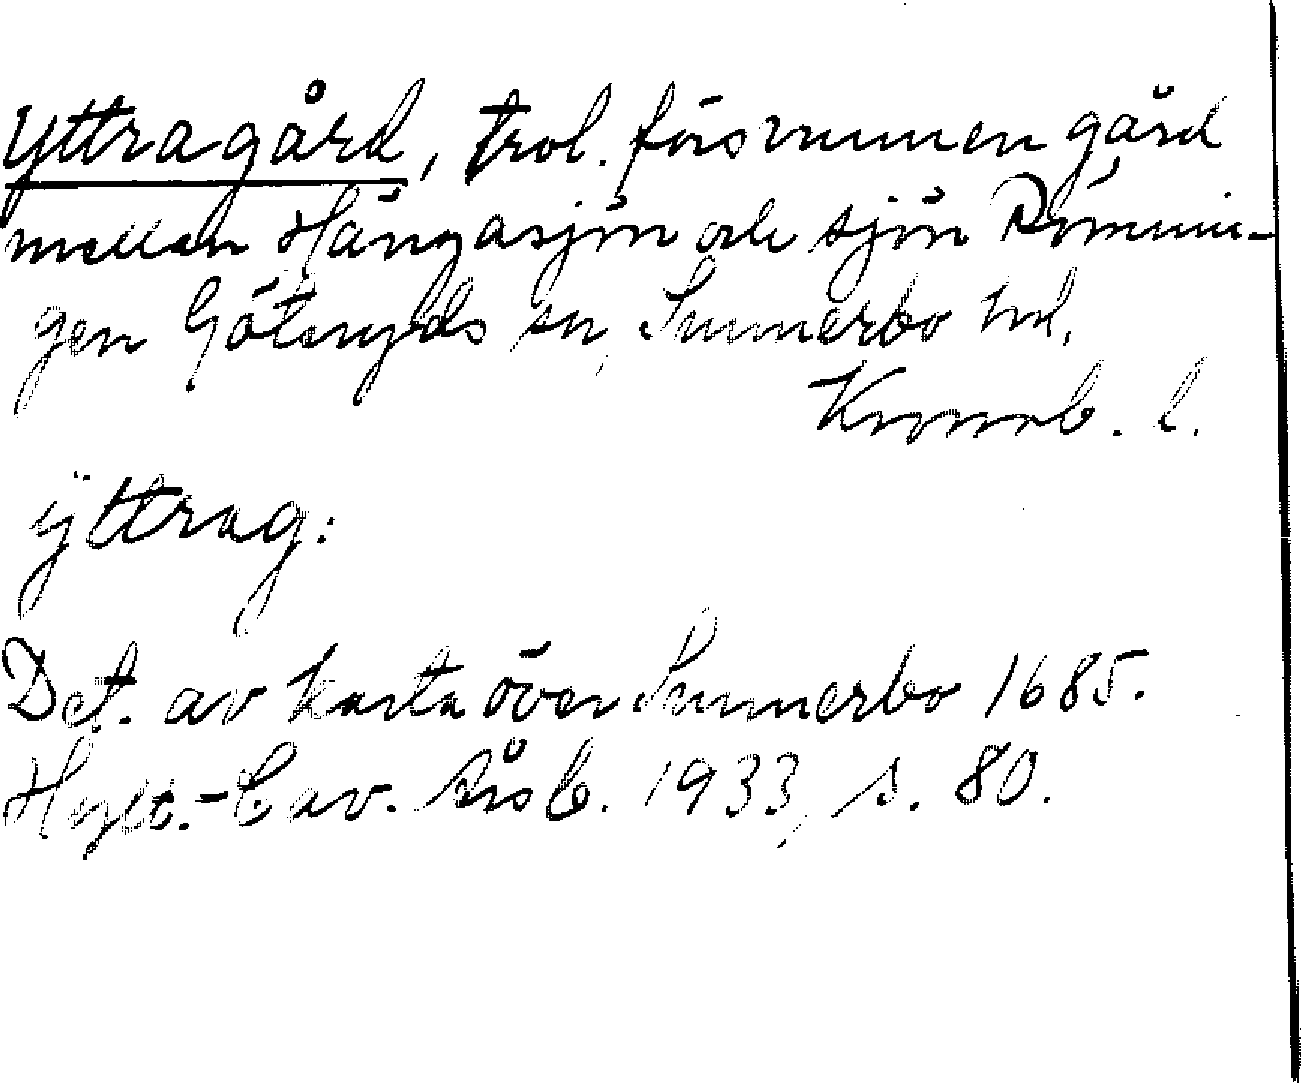 Yttragård, trol. försvunnen gård
mellan Hängasjön och sjön Römnin-
gen Göteryds sn, Sunnerbo hd,
Kronob. l.
ÿttrag:
Det. av karta över Sunnerbo 1685.
Hylt.-Cav. Årsb. 1933, s. 80.